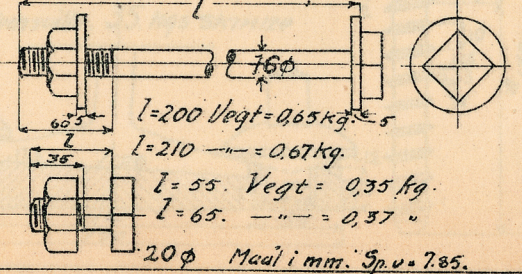 l
16φ
60 5
5
l=200 Vegt=0,65 kg.
l=210 —"— = 0.67 kg.
l
35
l= 55. Vegt= 0,35 kg.
l= 65. —"— = 0,37 "
20φ Maal i mm. Sp.v= 7.85.